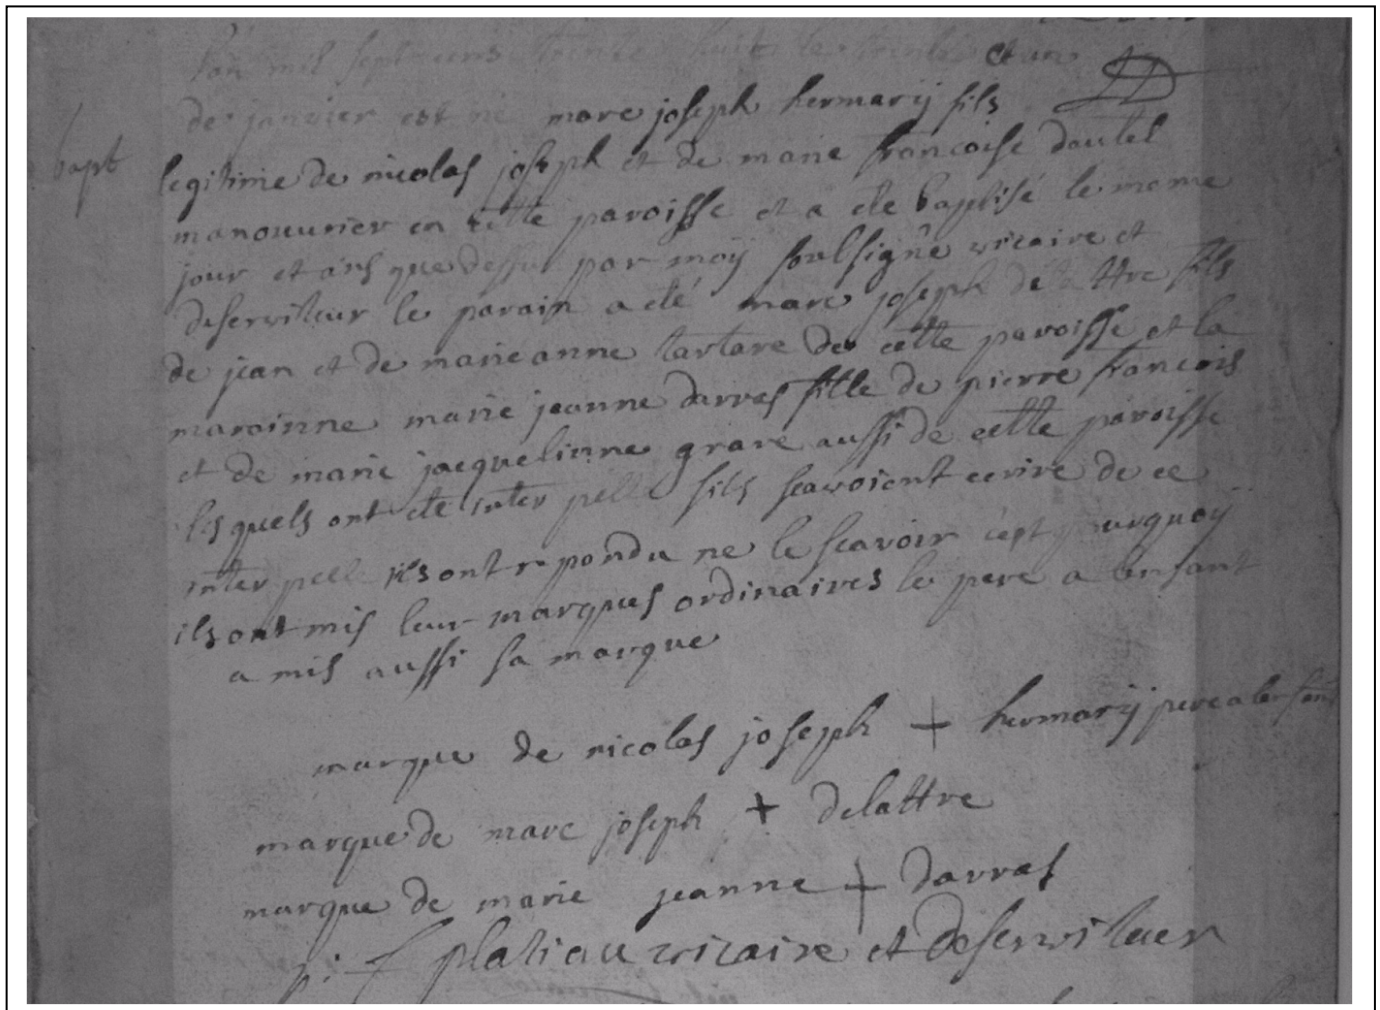 L'an mil sept cens trente huit le trente et un
de janvier est né marc joseph hermarÿ fils
bapt
legitime de nicolas joseph et de marie francoise dautel
manouurier en cette paroisse et a ete baptisé le meme
jour et ans que dessus par moÿ soulsigné vicaire et
deserviteur le parain a eté marc joseph delattre fils
de jean et de marie anne tartare de cette paroisse et la
marainne marie jeanne darras fille de pierre francois
et de marie jacquelinne grare aussi de cette paroisse
lesquels ont ete inter pellé sils scavoient ecrire de ce
inter pellé ils ont repondu ne le scavoir cept pourquoÿ
ils ont mis leur marques ordinaires le pere a lenfant
a mis aussi sa marque
marque de nicolas joseph + hermarÿ pere a lenfant
marque de marc joseph + delattre
marque de marie jeanne + darras
platiau vicaire et deserviteur